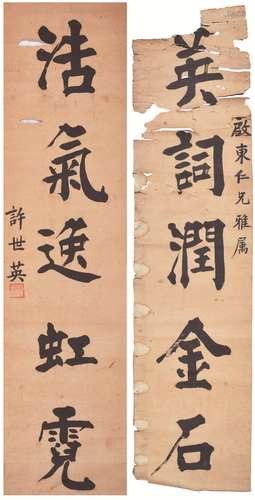 啟東仁兄雅属
英詞潤金石
浩氣逸虹霓
許世英